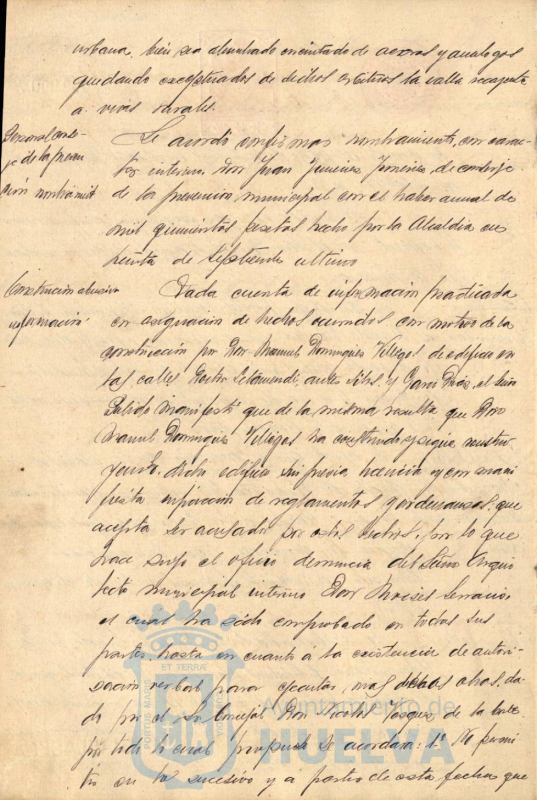 urbana, bien sea alumbrado encintado de aceras y analogos
quedando exceptuados de dichos arbitros la calle
a vivas
Personal conser-
je de la preven
ción nombramto
Se acordó confirmar nombramiento, con carac-
ter interino Don Juan Jimenez Jimenez de conserje
de la prevencion municipal con el haber anual de
mil quinientas pesetas hecho por la Alcaldia en
treinta de Septiembre ultimo
Construcción abusiva
información
Dada cuenta de información practicada
en asignacion de hechos ocurridos con motivo de la
construcción por Don Manuel Dominguez Villegas de edificio en
las calles Doctor Letamendi, antes Silos, y el Señor
Pulido manifestó que de la misma resulta que Don
Manuel Dominguez Villegas ha construido y sigue constru-
yendo dicho edificio sin previa licencia y con mani
fiesta infracción de reglamentos y ordenanzas, que
acepta ser acusado por estos hechos, por lo que
hace suyo el oficio denuncia del Señor Arqui
tecto municipal interino Don Moises Serrano,
el cual ha sido comprobado en todas sus
partes hasta en cuanto á la existencia de autori-
zación verbal para ejecutar mas obras, da-
da por el Sr Concejal Don Vazquez de la
por todo lo cual propuso se acordara: 1º No permi
tir en lo sucesivo y á partir de esta fecha que
PORTUS MARIS
ET TERRÆ
CUSTODIA
Ayuntamiento de
HUELVA